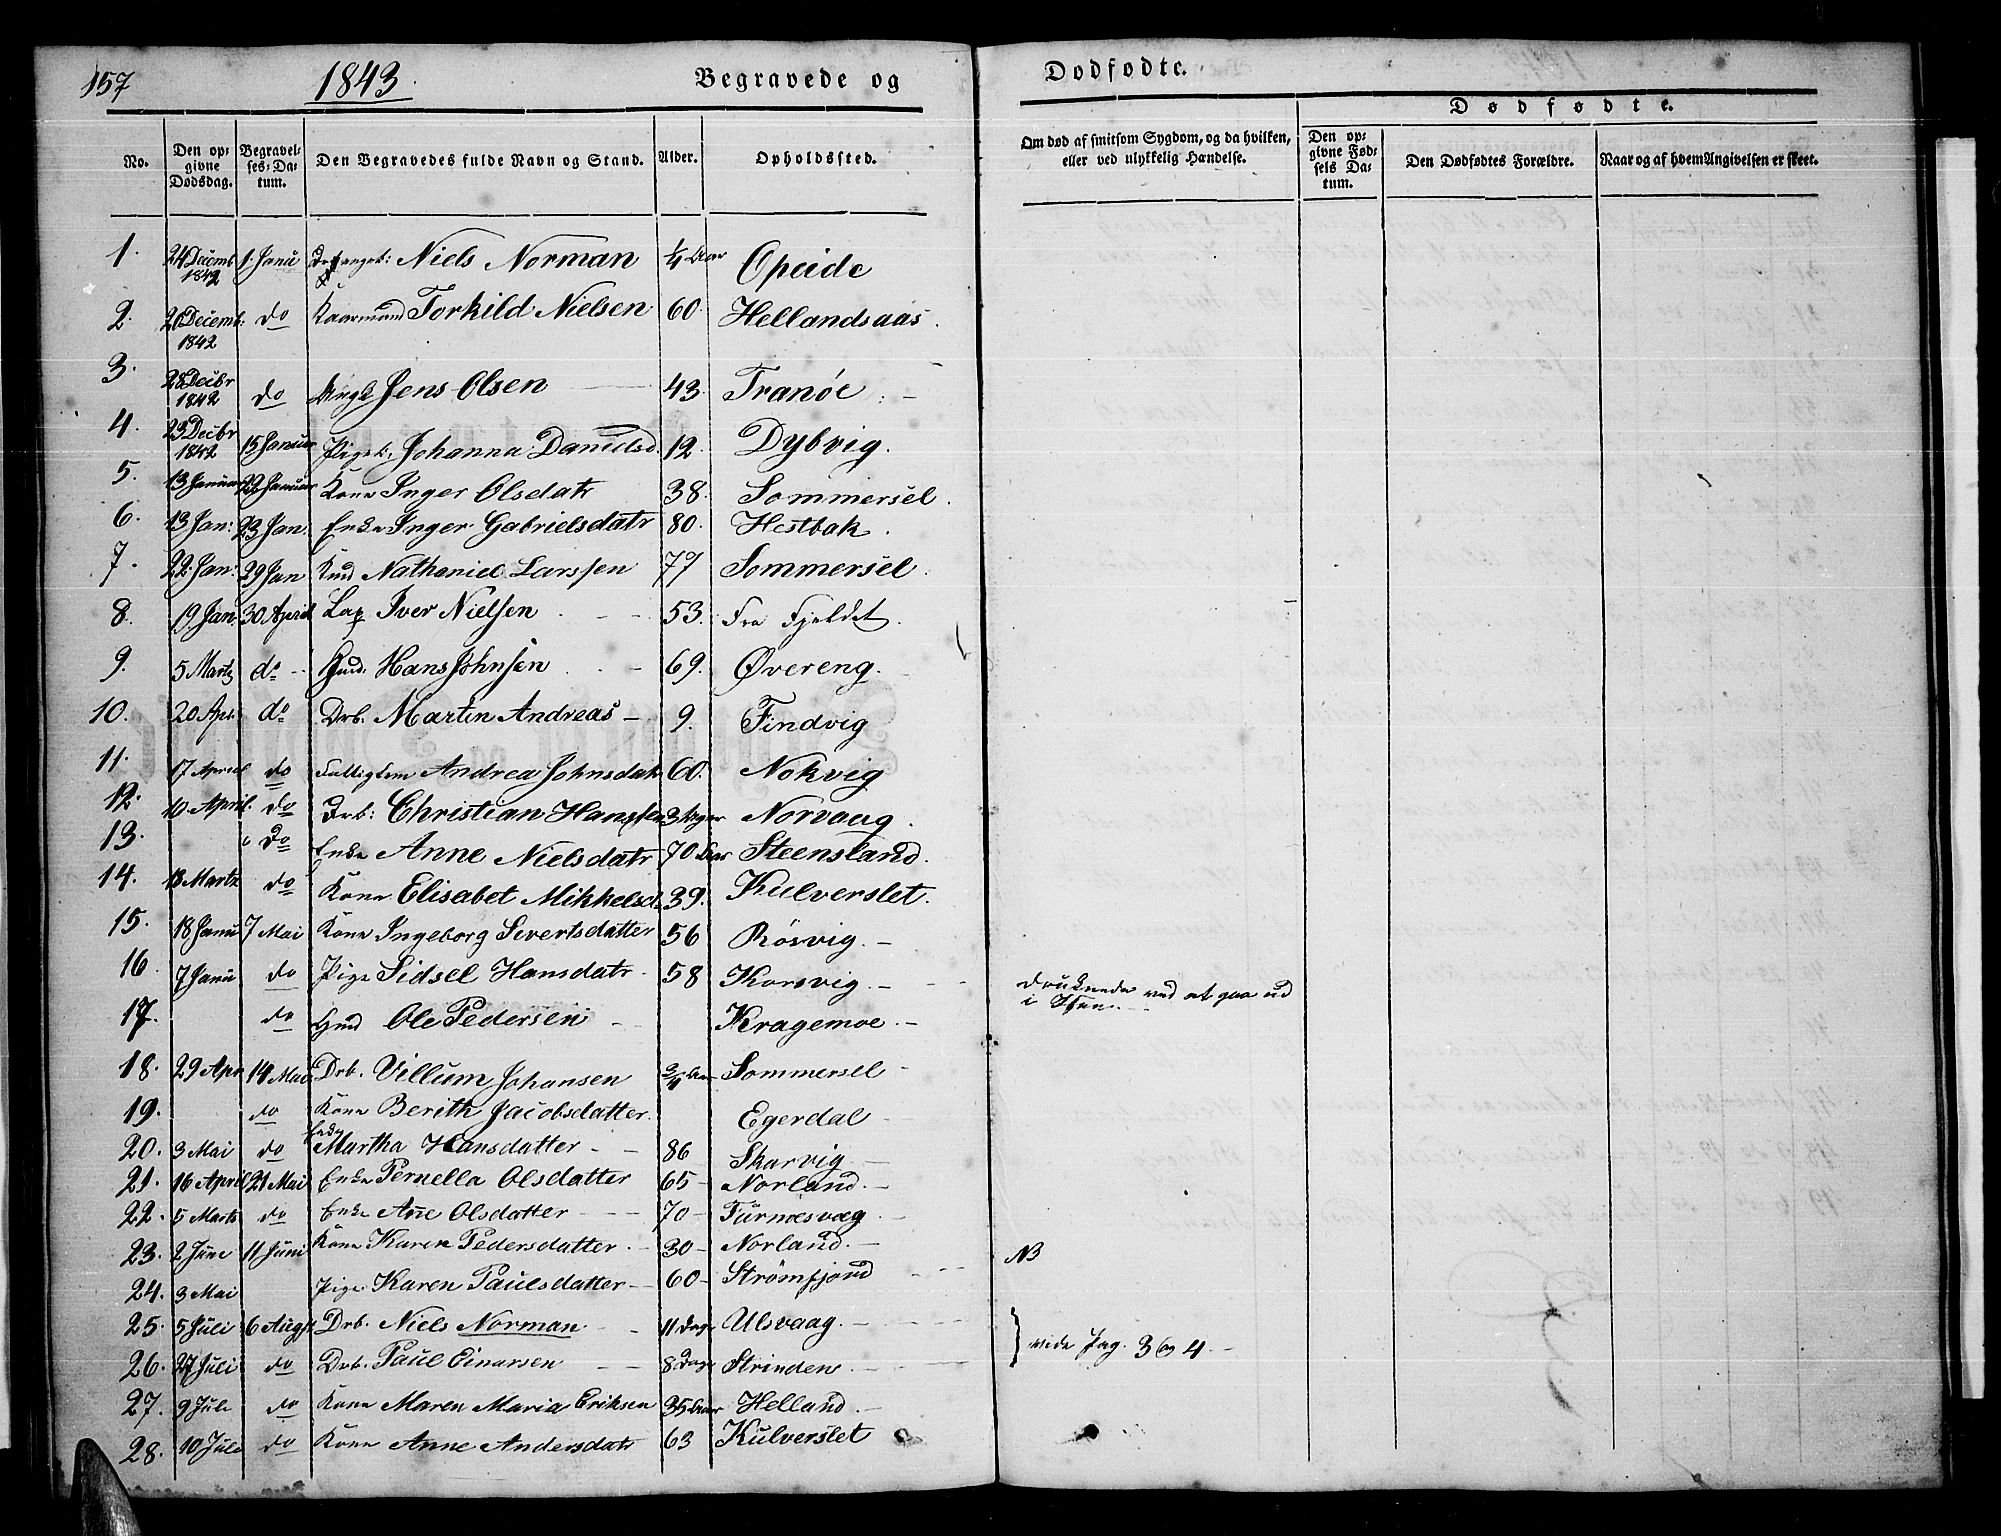 157 1843. Begravede og Dødfødte.
Dødfødte.
No. Den opgivne Dødsdag. Begravelses-Datum. Den Begravedes fulde Navn og Stand. Alder. Opholdssted. Om død af smitsom Sygdom, og da hvilken, eller ved ulykkelig Hændelse. Den opgivne Fødsels Datum. Den Dødfødtes Forældre. Naar og af hvem Angivelsen er skeet.
1. 24 Decemb 1842 1. Janu Niels Norman 1/4 Aar Opeide
2. Decemb. 1842 do Kaarmand Torkild Nielsen 60. Hellandsaas.
3. 28 Decbr 1842 do Jens Olsen 43. Tranöe. -
4. 23 Decbr 1842 15 Januar Pigeb. Johanna Danielsd. 12. Dybvig.
5. 13 Januar 22 Januar Kone Inger Olsdatr 38. Sommersel.
6. 13 Jan: 23 Jan. Enke Inger Gabrielsdatr 80. Hestbak.
7. 22 Jan: 29 Jan Nathaniel Larssen 77 Sommersel.
8. 19 Jan. 30 April Lap Iver Nielsen 53. Fra Fjeldet.
9. 5 Martz do Hans Johnsen 69. Øvereng.
10. 20 Apr. do Drb. Martin Andreas - 9. Findvig
11. 17 April do Fattiglem Andrea Johnsdatr 60. Nokvig
12. 10 April. do Drb: Christian Hanssen 3 Uger Norvaag.
13. do Enke Anne Nielsdatr 70 Aar Steensland.
14. 18 Martz do Kone Elisabet Mikkelsd. 39. Kulverslet.
15. 18 Janu 7 Mai Kone Ingeborg Sivertsdatter 56 Rösvig. -
16. 7 Janu do Pige Sidsel Hansdatr 58 Korsvig. - druknede ved at gaa ud
i Isen.
17. do Ole Pedersen Kragemoe. -
18. 29 Apr 14 Mai Drb. Villum Johansen 3/4 Aar Sommersel -
19. do Kone Berith Jacobsdatter. Egerdal -
20. 3 Mai do Enke Martha Hansdatter - 86 Skarvig -
21. 16 April 21 Mai Enke Pernella Olsdatter 65 - Norland. -
22. 5 Marts do Enke Ane Olsdatter 70 -
23. 2 June 11 Juni Kone Karen Pedersdatter. - 30 - Norland. - NB
24. 3 Mai Pige Karen Paulsdatter - 60 - Strømfjord
25. 5 Juli 6 Augst Drb. Niels Norman - 11 Dage Ulsvaag. -
26. 27 Juli do Drb. Paul Einarsen 8 Dage Strinden. - vide Pag. 3 og 4. -
27. 9 Juli do Kone Maren Maria Eriksen 35 Aar Helland. -
28. 10 Juli do Kone Anne Andersdatr 63 Kulverslet